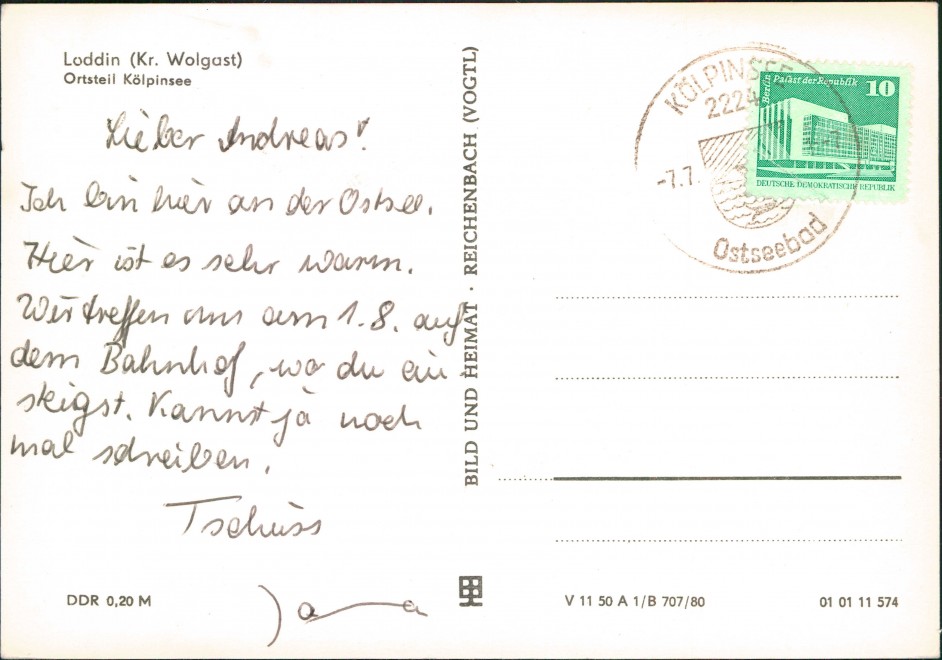 Loddin (Kr. Wolgast)
Ortsteil Kölpinsee
Lieber Andreas!
Ich bin hier an der Ostsee.
Hier ist es sehr warm.
Wir treffen uns am 1.8. auf
dem Bahnhof, wo du ein
steigst. Kannst ja noch
mal schreiben.
Tschüss
Jana
DDR 0,20 M
BILD UND HEIMAT · REICHENBACH (VOGTL)
KÖLPINSEE
2224
-7.7.
Ostseebad
Berlin Palast der Republik
10
DEUTSCHE DEMOKRATISCHE REPUBLIK
V 11 50 A 1/B 707/80
01 01 11 574